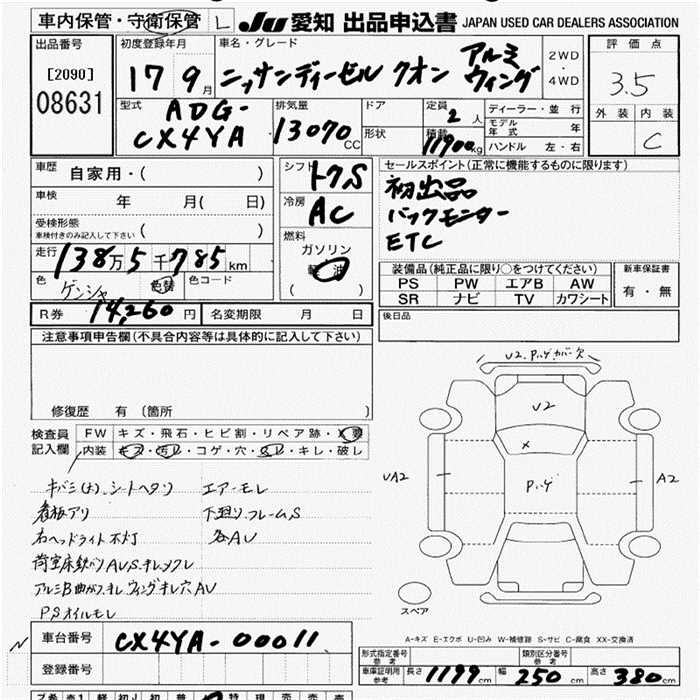 車内保管・守衛保管 L JU 愛知 出品申込書 JAPAN USED CAR DEALERS ASSOCIATION
出品番号 初度登録年月 車名・グレード 評価点
[2090] 17 9月 ニッサンディーゼル クオン アルミウィング 2WD・4WD 3.5
08631
型式 排気量 ドア 定員 ディーラー・並行 外装 内装
ADG-CX4YA 13070CC 形状 2人 モデル年式 年 C
積載 11900kg ハンドル 左・右
車歴 自家用・( ) シフト 7S セールスポイント(正常に機能するものに限ります)
車検 年 月( 日) 冷房 AC 初出品
受検形態 車検付きのみ記入して下さい ( ) バックモニター
燃料 ETC
走行 138万5千785km ガソリン
軽油
( )
色 ゲンシャ 色替 色コード
装備品(純正品に限り○をつけてください) 新車保証書
PS PW エアB AW 有・無
SR ナビ TV カワシート
R券 14,260円 名変期限 月 日 後日品
注意事項申告欄(不具合内容等は具体的に記入して下さい)
修復歴 有 〔箇所 〕
検査員記入欄 FW キズ・飛石・ヒビ割・リペア跡・X要
内装 キズ・汚レ・コゲ・穴・スレ・キレ・破レ
キバミ(大).シートヘタリ エアーモレ
看板アリ 下廻り.フレームS
右ヘッドライト不灯 各AU
荷室床鉄バリAU.S.キレメクレ
アルミB曲がりキレ ウィングキレ穴AU
PSオイルモレ
U2.Pハゲ.カバー欠
U2
X
UA2 Pハゲ A2
スペア
A-キズ E-エクボ U-凹み W-補修跡 S-サビ C-腐食 XX-交換済
車台番号 CX4YA-00011
登録番号
形式指定番号 参考 類別区分番号 参考
車庫証明用 参考 長さ 1199cm 幅 250cm 高さ 380cm